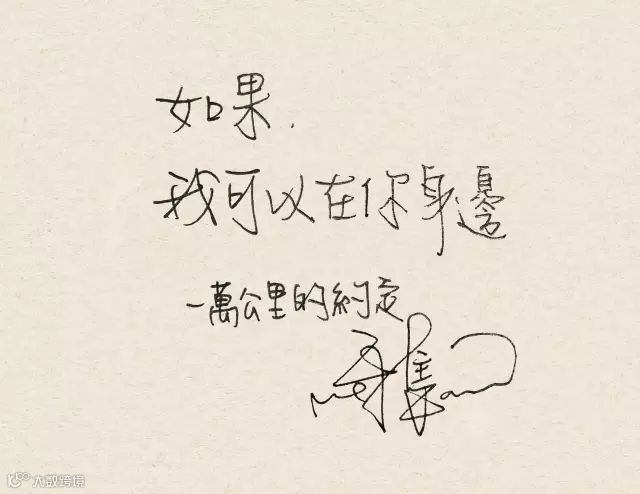 如果.
我可以在你身邊
一萬公里的約定
大数跨境